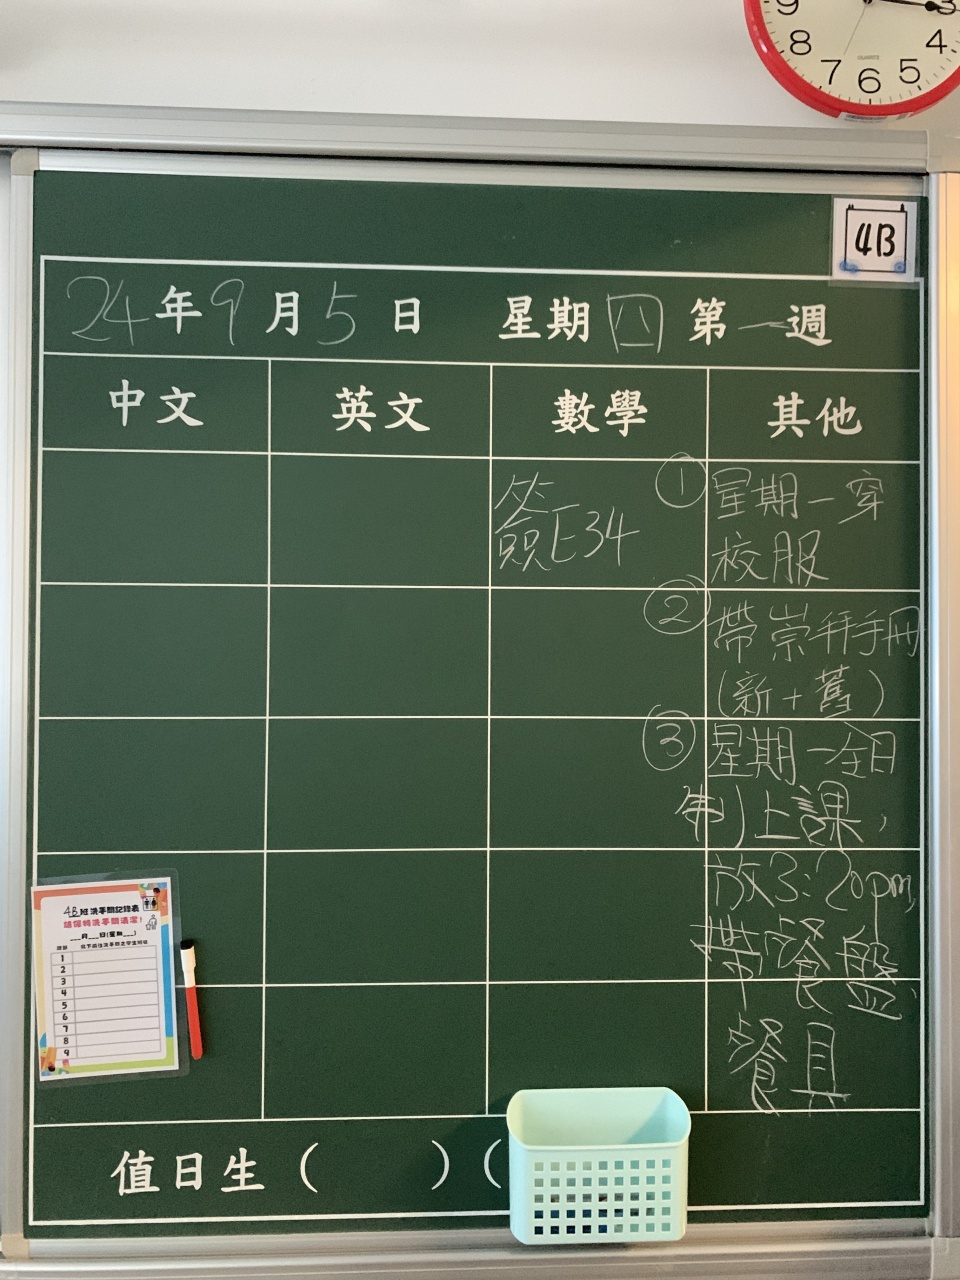 9 3
8 4
7 6 5
QUARTZ
4B
24年9月5日 星期四 第一週
中文 英文 數學 其他
簽E34
① 星期一穿
校服
② 帶崇拜手冊
(新+舊)
③ 星期一全日
制上課,
放3:20pm,
帶餐盤,
餐具
4B班洗手間記錄表
請保持洗手間清潔!
___月___日(星期___)
1
2
3
4
5
6
7
8
9
值日生( )(